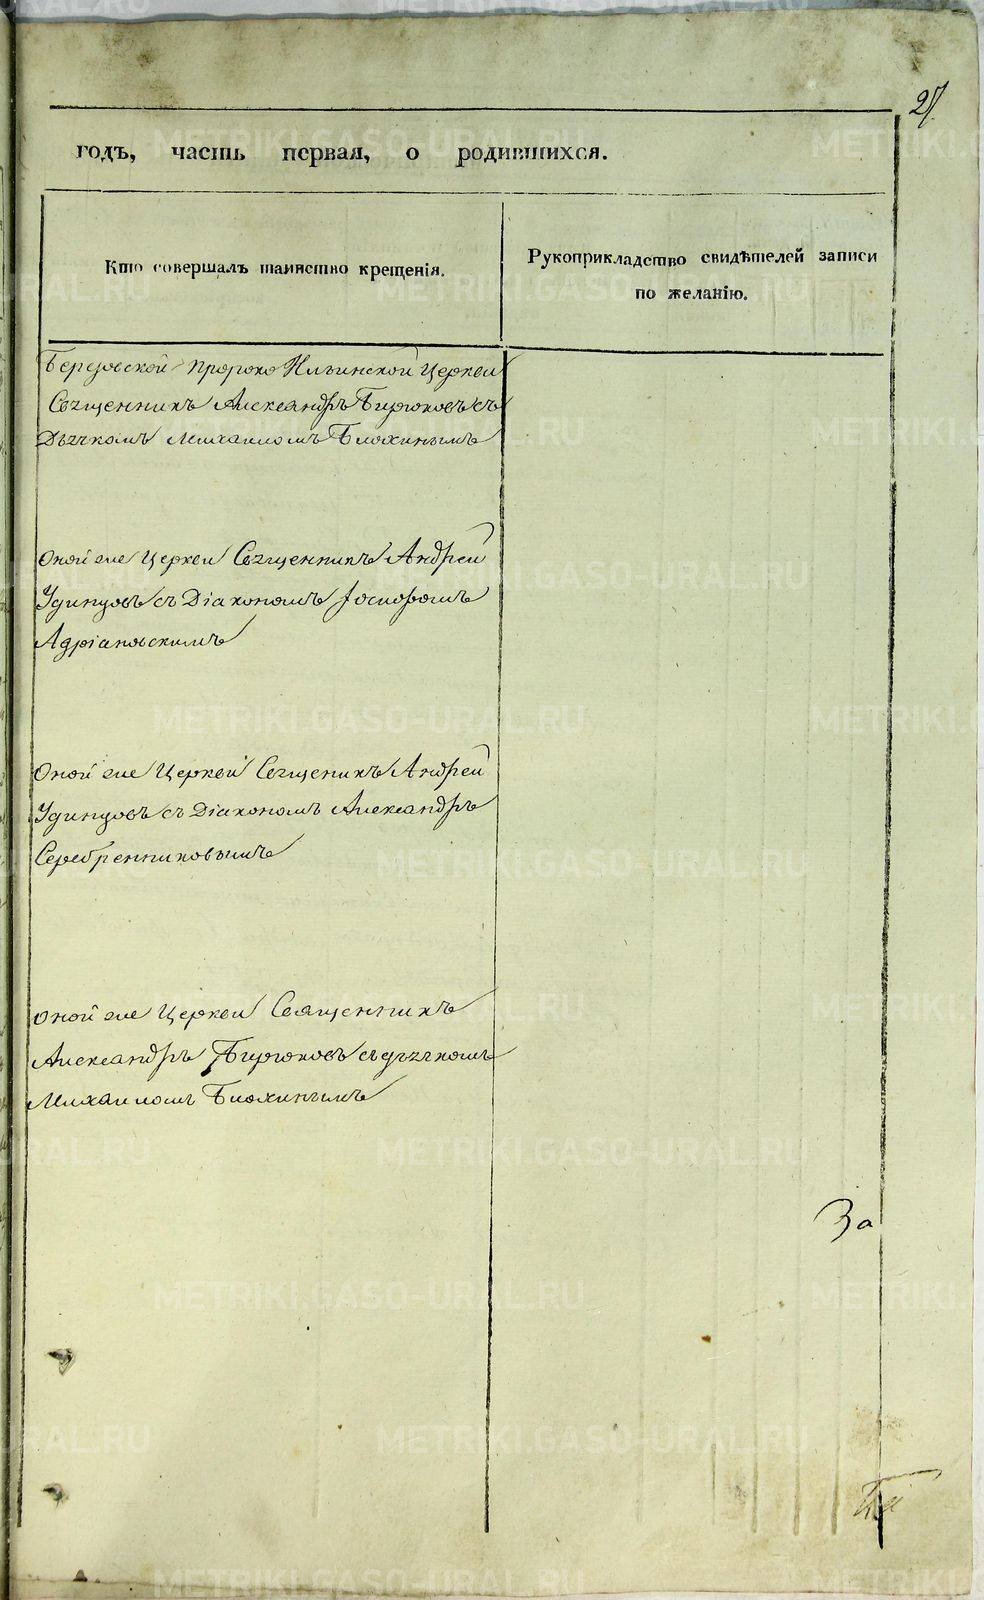 27
годъ, часть первая, о родившихся.
Кто совершалъ таинство крещенія.
Рукоприкладство свидѣтелей записи
по желанію.
Березовской Пророко Ильинской Церкви
Священникъ Александръ Бирюковъ съ
Дьячкомъ Михаиломъ Блохинымъ
Оной же Церкви Священникъ Андрей
Удинцовъ съ Діакономъ
Адріановскимъ
Оной же Церкви Священикъ Андрей
Удинцовъ съ Діакономъ Александръ
Серебренниковымъ
Оной же Церкви Священникъ
Александръ Бирюковъ съ дьячкомъ
Михаиломъ Блохинымъ
За
METRIKI.GASO-URAL.RU